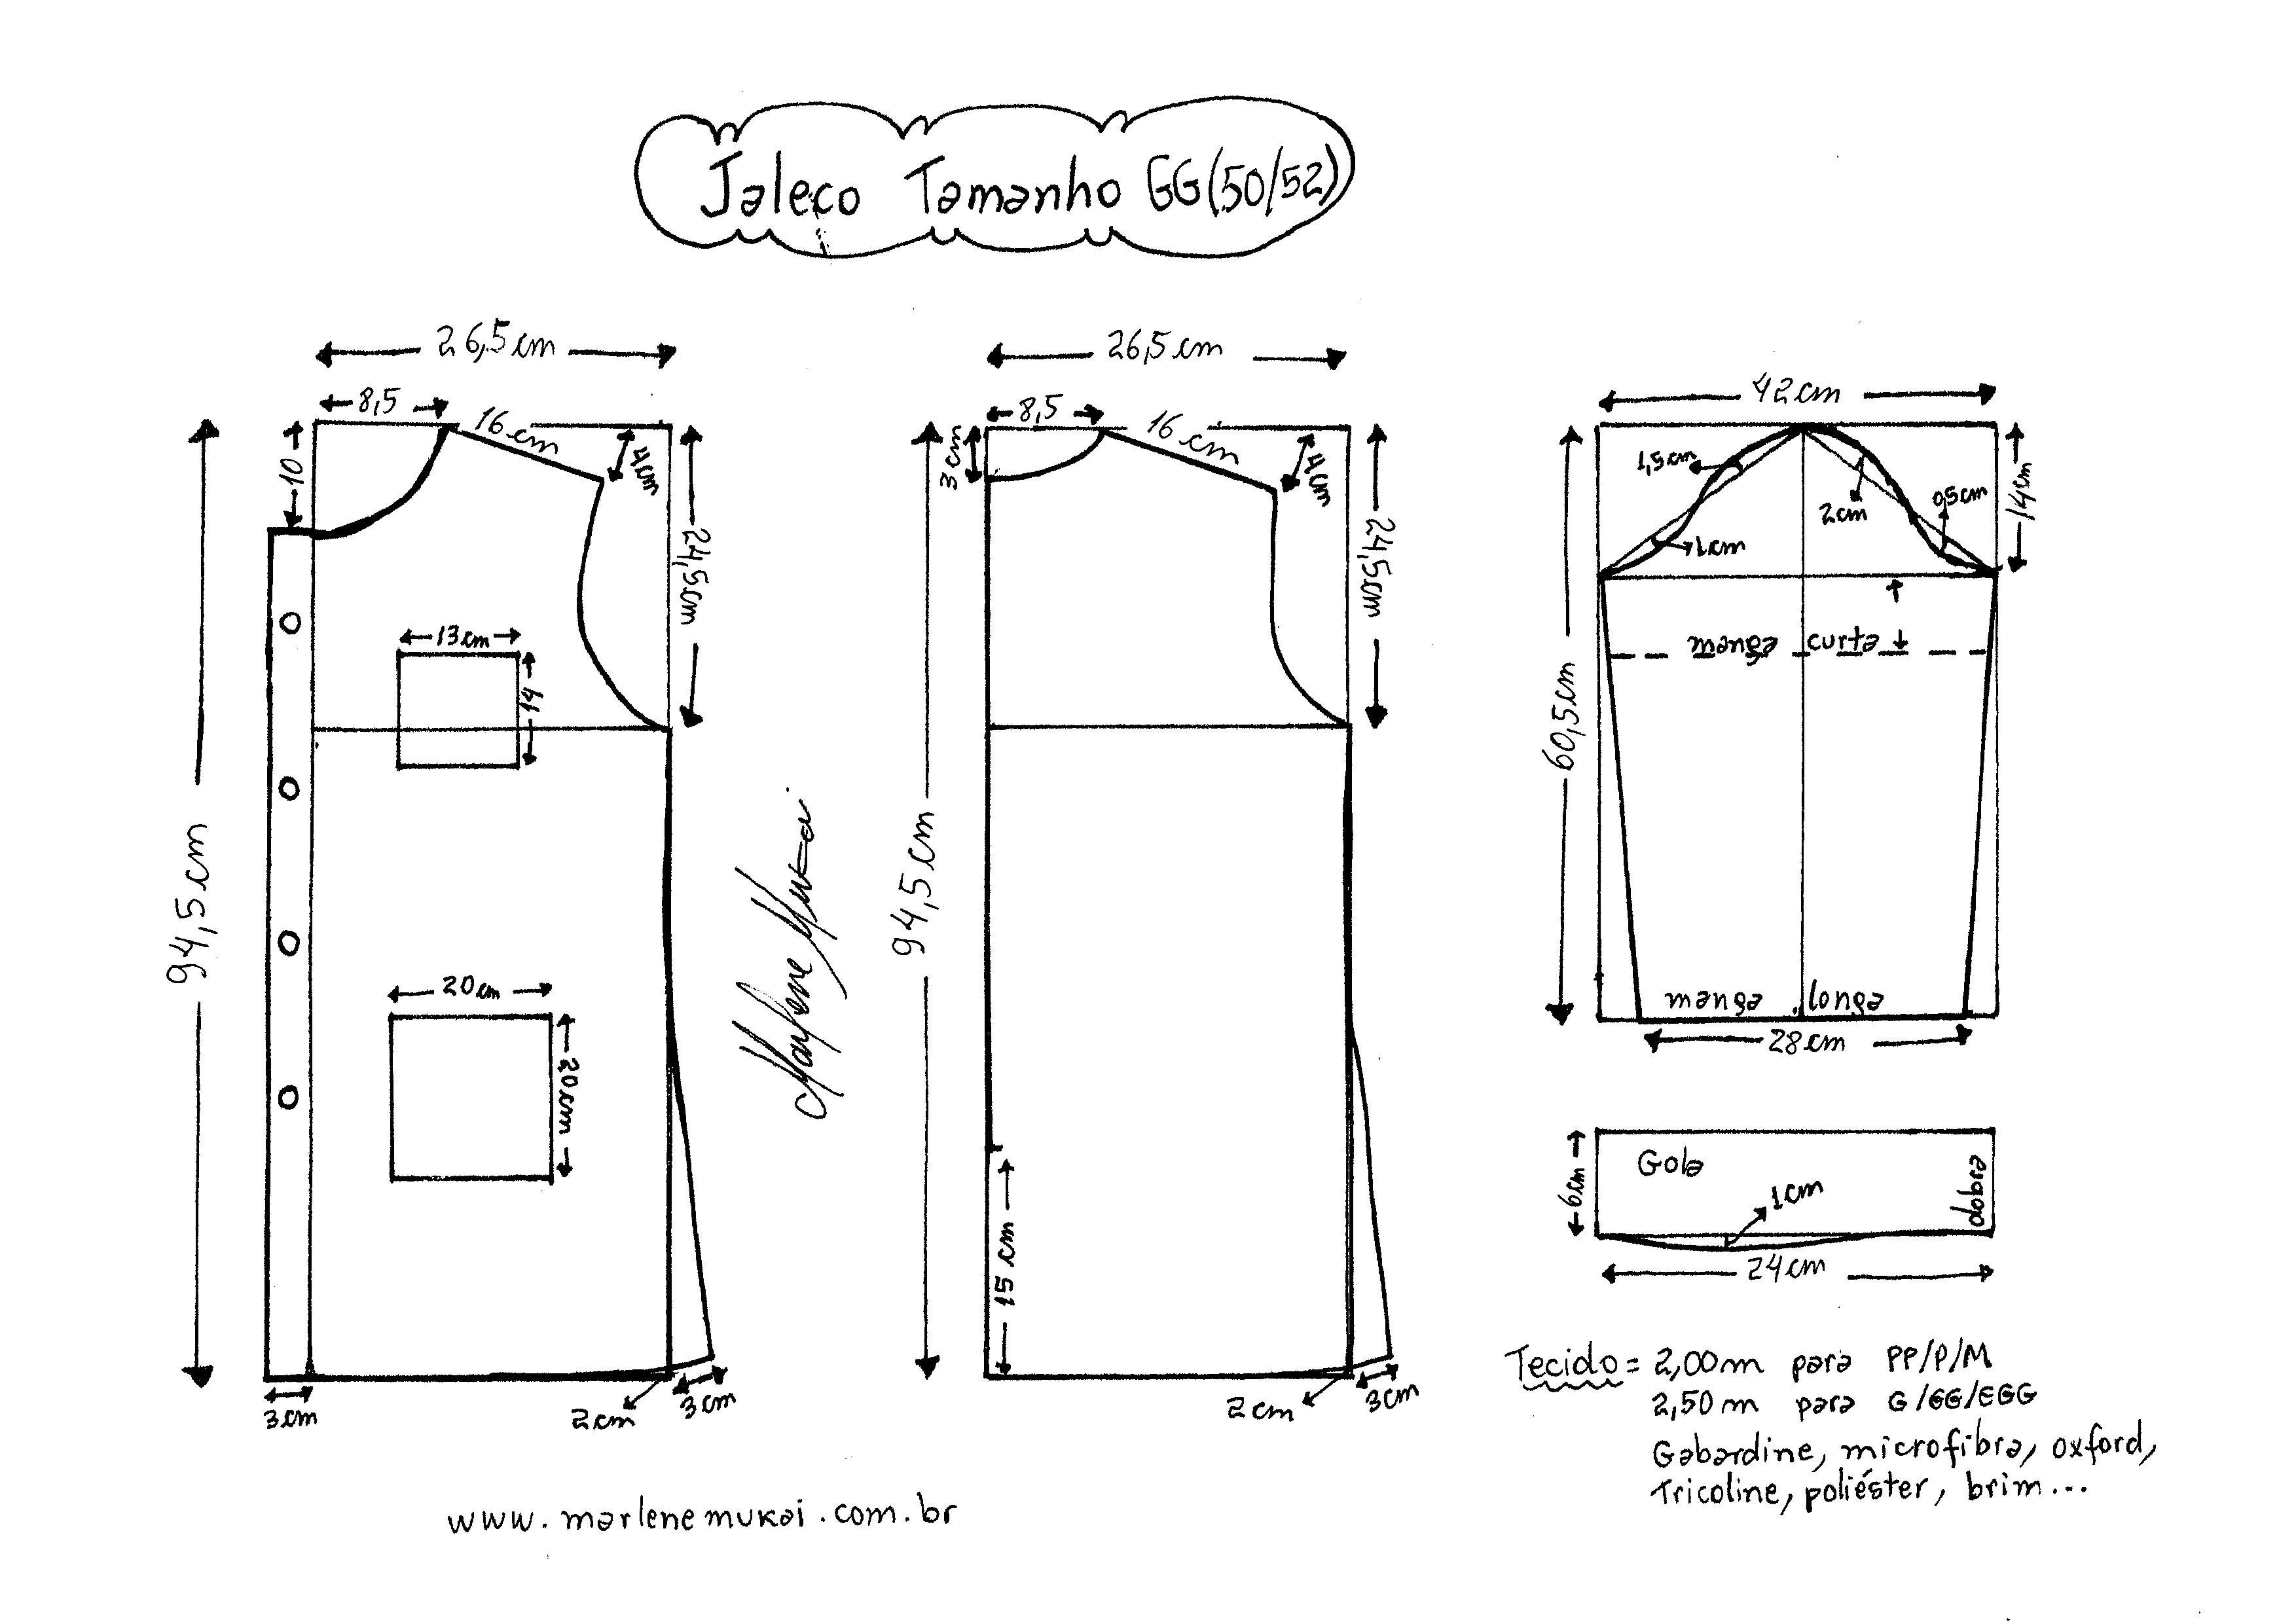 Jaleco Tamanho GG(50/52)
26,5cm
8,5
16cm
4cm
10
24,5cm
94,5cm
13cm
14
20cm
20cm
3cm
2cm
3cm
Marlene Mukai
26,5cm
8,5
16cm
4cm
3cm
24,5cm
94,5cm
15cm
2cm
3cm
42cm
1,5cm
2cm
0,5cm
1cm
14cm
manga curta
60,5cm
manga longa
28cm
Gola
6cm
1cm
dobra
24cm
Tecido = 2,00m para PP/P/M
2,50m para G/GG/EGG
Gabardine, microfibra, oxford,
Tricoline, poliéster, brim...
www.marlenemukai.com.br